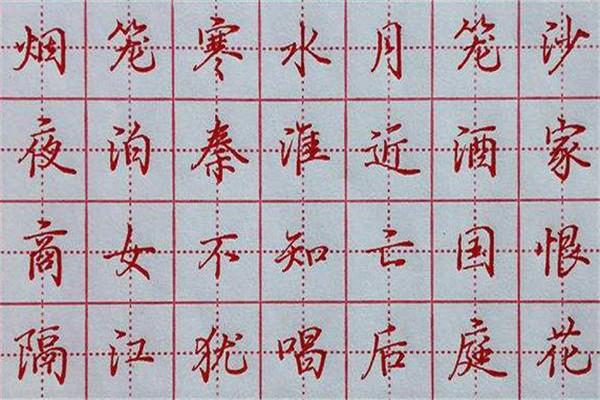 烟笼寒水月笼沙
夜泊秦淮近酒家
商女不知亡国恨
隔江犹唱后庭花